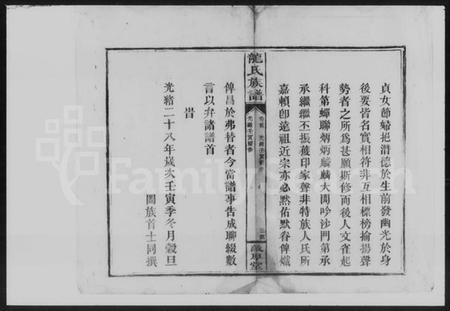 貞女節婦挹潛德於生前發幽光於身
後要皆名實相符非互相標榜揄揚聲
勢者之所爲甚願斯修而後人文雀起
科第蟬聯炳炳麟麟大開吟沙門第承
承繼繼丕振援印家聲非特族人氏所
嘉賴卽遠祖近宗亦必默佑默眷俾熾
龍氏族譜
俾昌於弗替者今當譜事告成聯綴數
言以弁諸譜首
旹
光緒二十八年歲次壬寅季冬月穀旦
闔族首士同撰